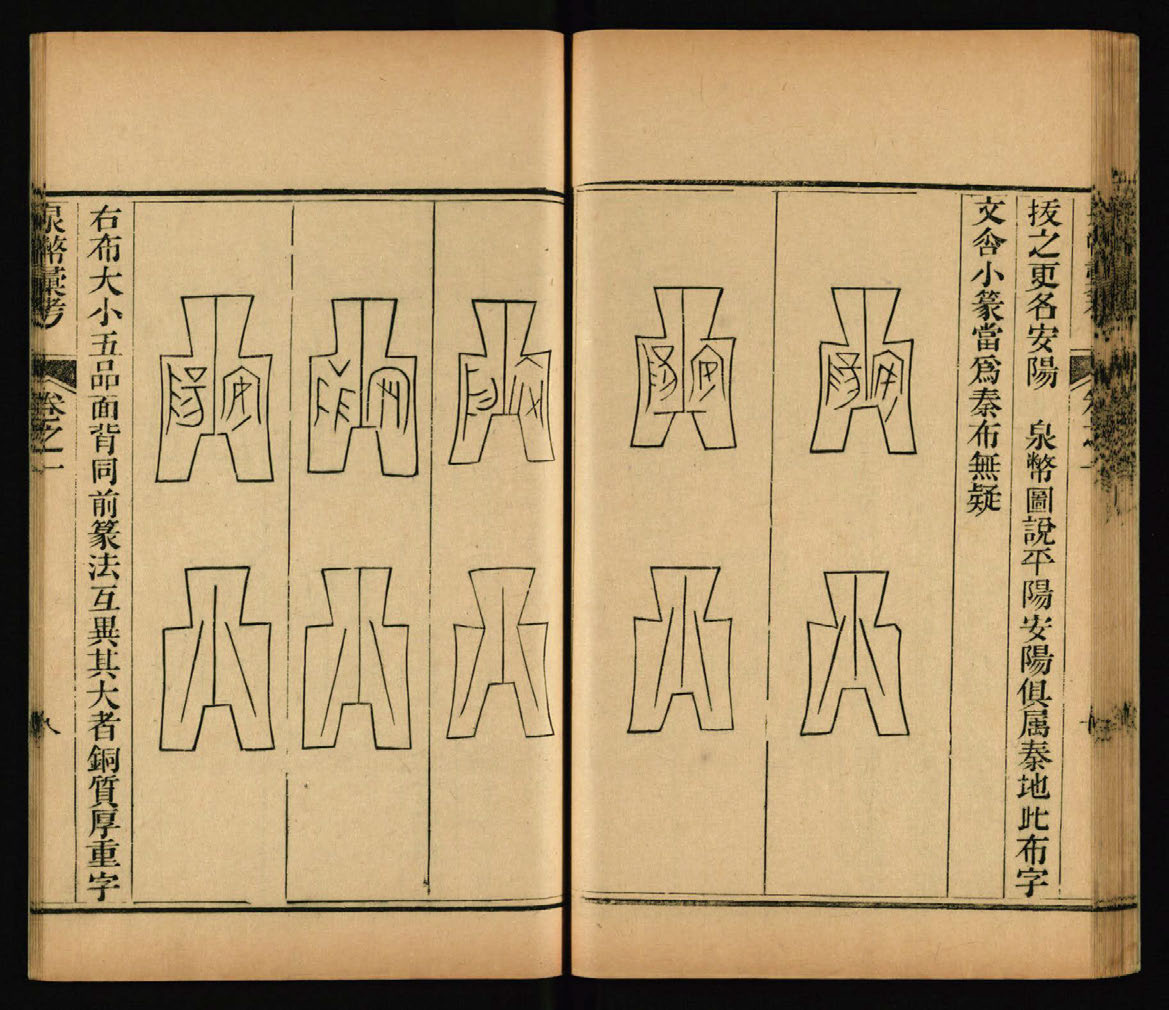 拔之更名安陽　泉幣圖說平陽安陽俱属秦地此布字
文含小篆當爲秦布無疑
右布大小五品面背同前篆法互異其大者銅質厚重字
泉幣彙考
卷之一
八